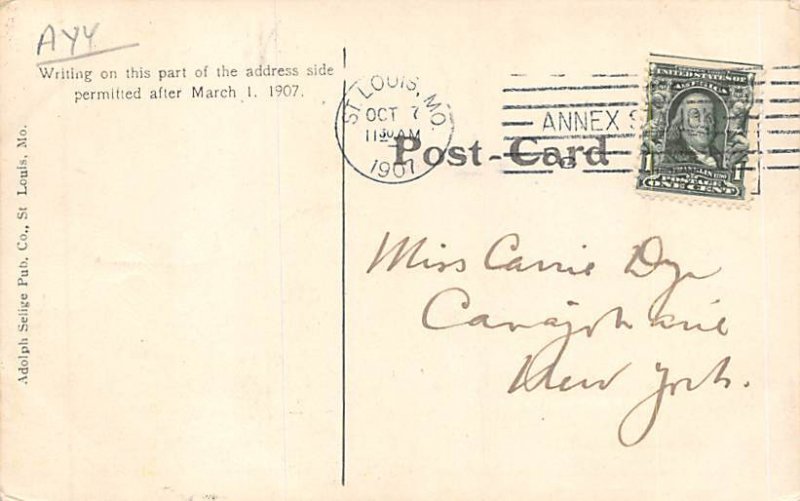 AYY
Writing on this part of the address side
permitted after March 1, 1907.
Adolph Selige Pub. Co., St Louis, Mo.
ST. LOUIS, MO.
OCT 7
11 30 AM
1907
ANNEX S
Post-Card
UNITED STATES OF
AMERICA
FRANKLIN
1 POSTAGE 1
ONE CENT
Miss Carrie Dye
Canajoharie
New York.